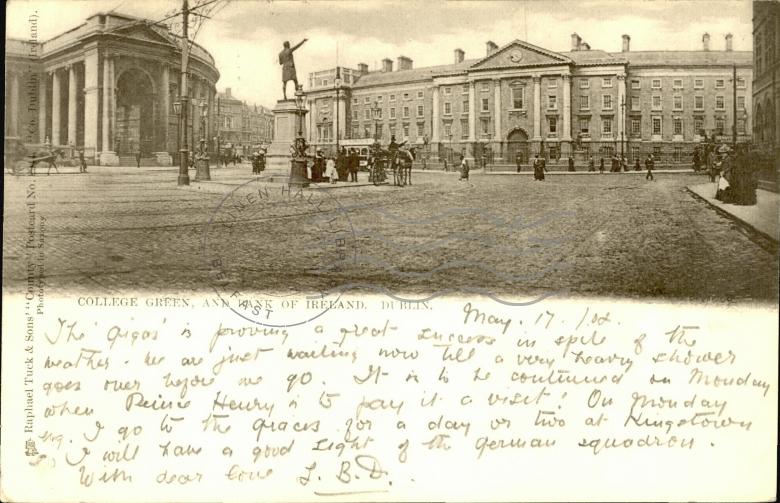 Raphael Tuck & Sons' "County" Postcard No.
(Co. Dublin, Ireland).
Photographed in Surrey
LINEN HALL LIBRARY
BELFAST
COLLEGE GREEN, AND BANK OF IRELAND, DUBLIN.
May. 17. /02.
The 'Gigas' is proving a great success in spite of the
weather. We are just waiting now till a very heavy shower
goes over before we go. It is to be continued on Monday
when Prince Henry is to pay it a visit! On Monday
I go to the Graces for a day or two at Kingstown
so I will have a good sight of the German squadron.
With dear love L.B.D.